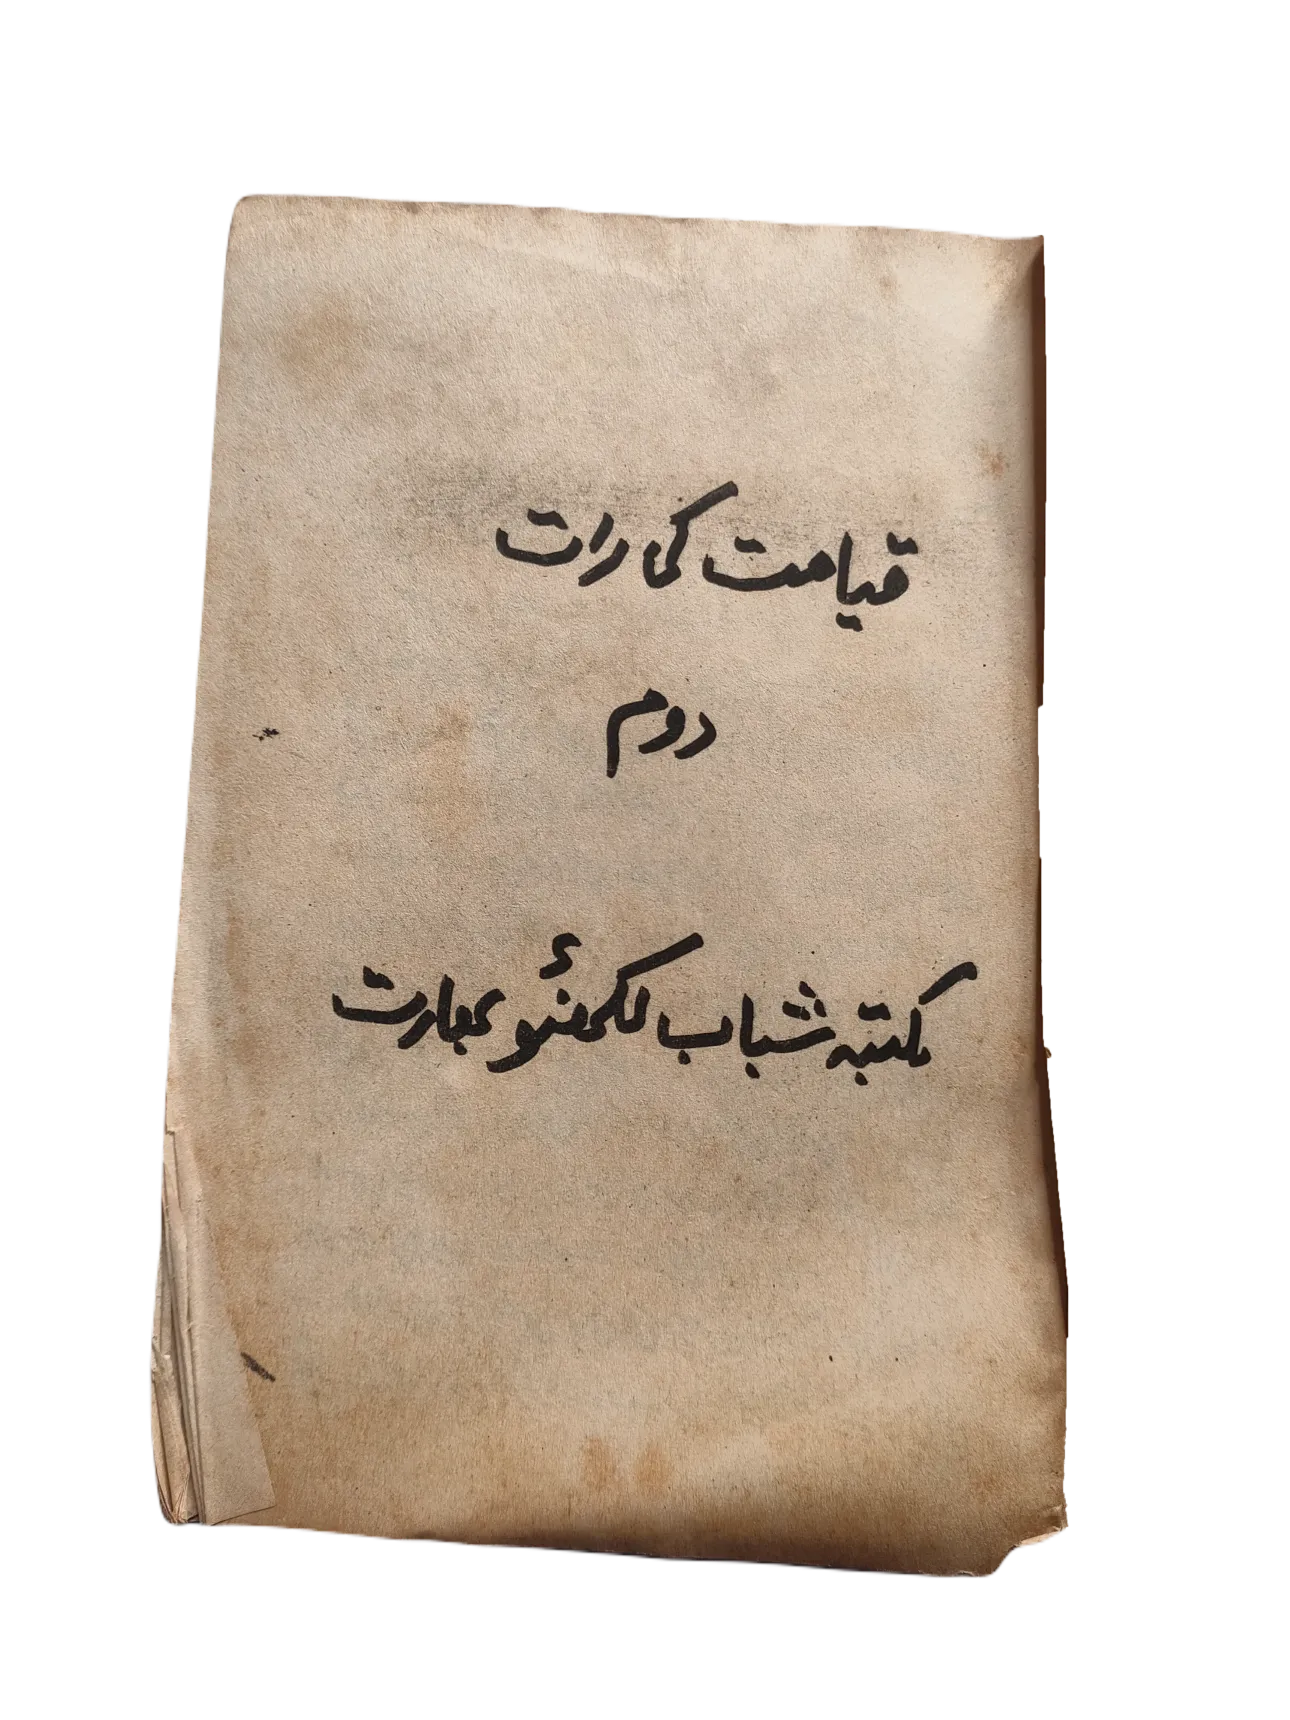 قیامت کی رات
دوم
مکتبہ شباب لکھنؤ بھارت